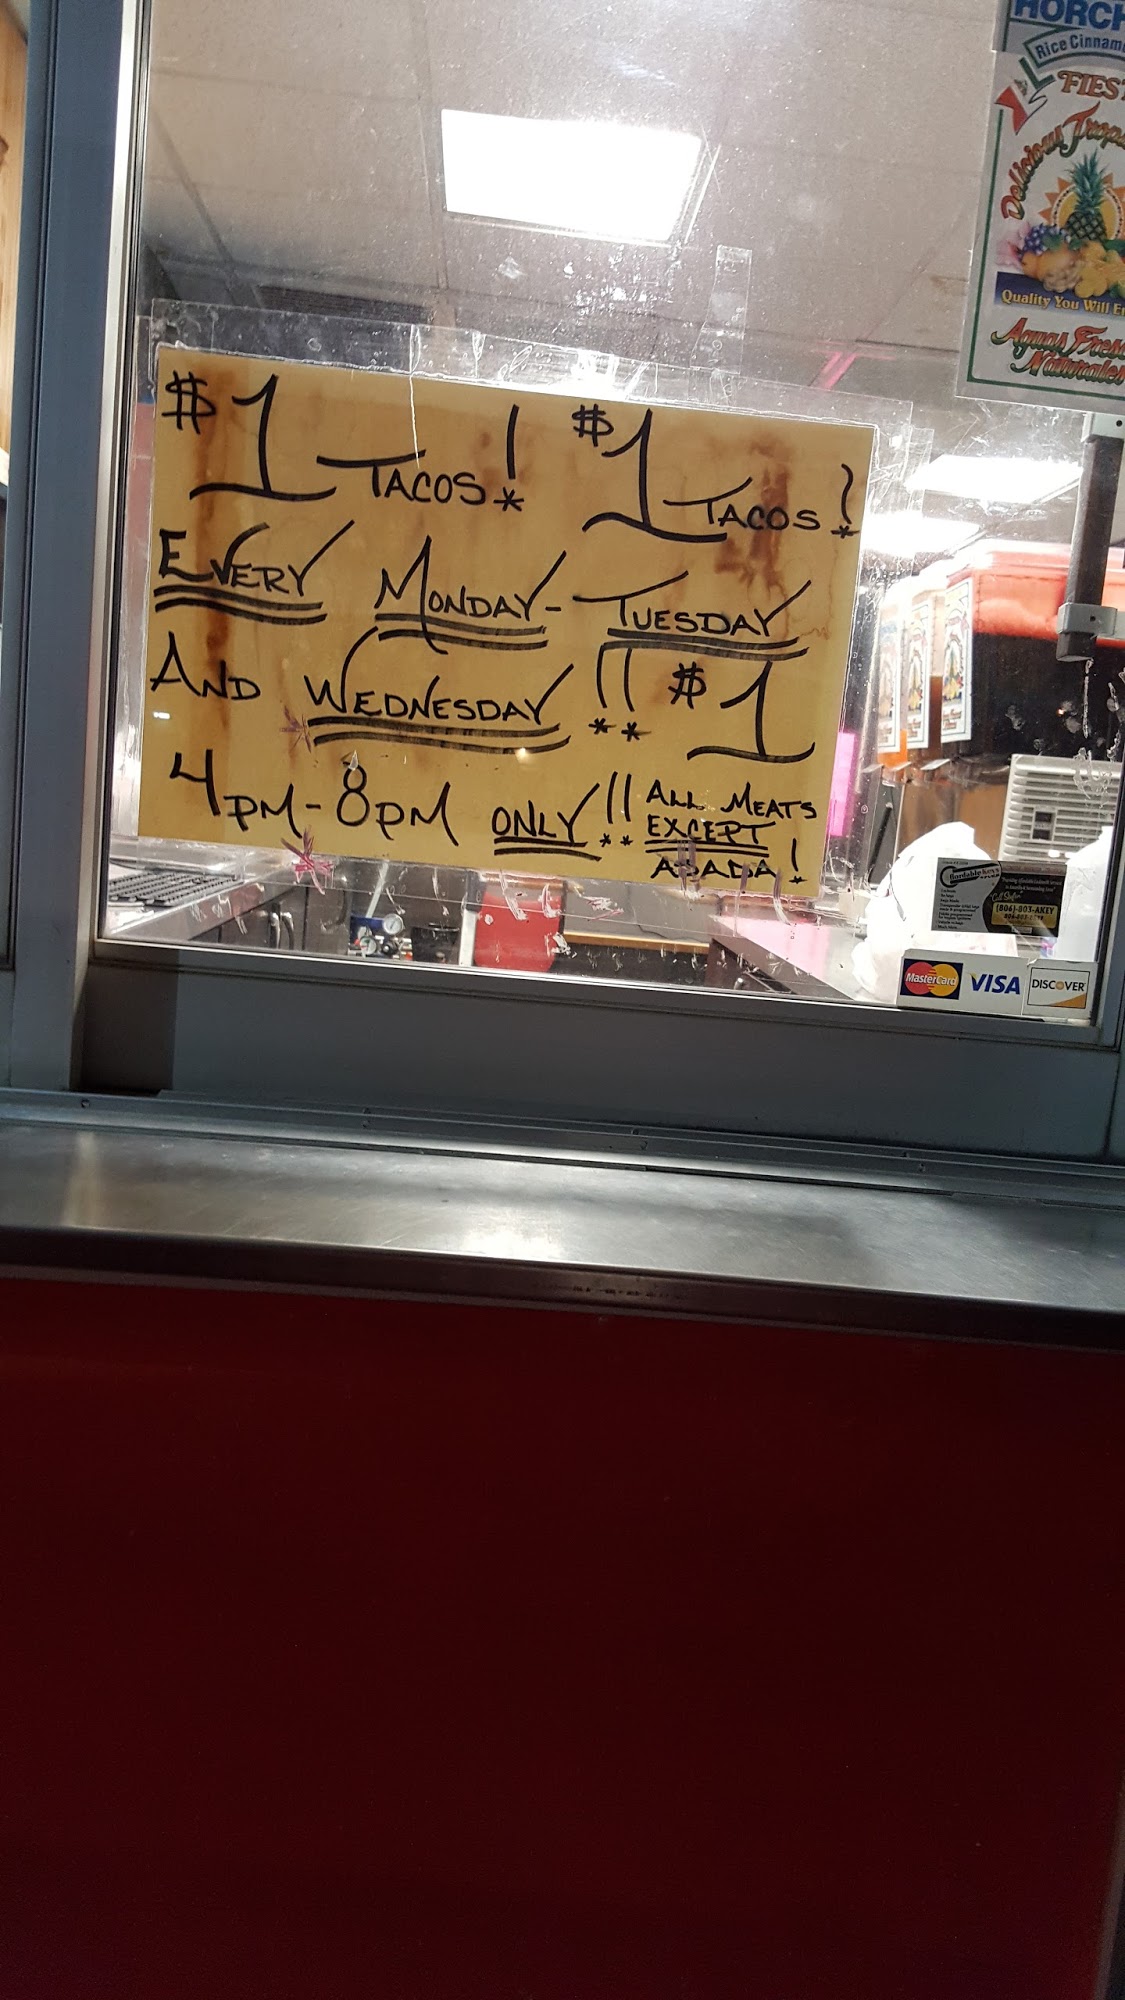 $1 TACOS! $1 TACOS!
EVERY MONDAY- TUESDAY
AND WEDNESDAY!! $1
4PM-8PM ONLY!! ALL MEATS
EXCEPT
ASADA!
HORCH
Rice Cinnam
FIES
Delicious Trop
Quality You Will E
Aguas Fres
Naturales
(806)-803-AKEY
MasterCard VISA DISCOVER